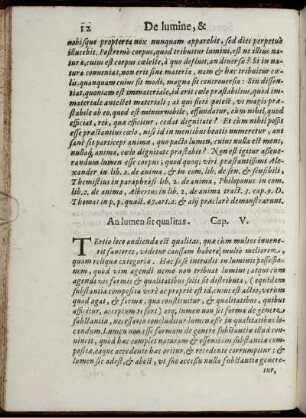 12 De lumine, &
nobisque propterea nox nunquam apparebit, sed dies perpetuò
illucebit. Postremò corpus, quod tribuitur lumini, est ne illius na-
turæ, cuius est corpus cæleste, à quo defluit, an diversæ? Si in na-
tura conveniat, non erit sine materia, nam & hæc tribuitur cæ-
li, quanquam cuius sit modi, magna sit controversia: Sin dissen-
tiat, quoniam est immateriale, id erit cælo præstabilius, quòd im-
materiale antistet materiali; at qui fieri potest, vt magis præ-
stabile ab eo, quod est minus nobile, effundatur, cùm nihil, quod
efficiat, rei, quæ efficitur, cedat dignitate? Et cùm nihil possit
esse præstantius cælo, nisi id in mentibus beatis numeretur, aut
sanè sit particeps animæ, quo pacto lumen, cuius nulla est mens,
nullaque, anima, cælo dignitate præstabit? Nequit igitur asseue-
randum lumen esse corpus; quod quoque viri præstantissimi Ale-
xander in lib. 2. de anima, & in com. lib. de sen. & sensibili.
Themistius in paraphrasi lib. 2. de anima, Philoponus in com.
lib. 2. de anima, Albertus in lib. 2. de anima tract. 3. cap. 9. D.
Thomas in p. p. quæst. 67. art. 2. & alij præclarè demonstrarunt.
An lumen sit qualitas. Cap. V.
TErtio loco audienda est qualitas, quæ cùm multos invene-
rit fautores, videtur causam habere multò meliorem,
quàm reliqua categoria. Hæc sese intrudit in luminis possessio-
nem, quòd vim agendi nemo non tribuat lumini; atque cùm
agendi vis formis & qualitatibus solis sit distributa, (equidem
substantia composita verè ac propriè est id, cuius est actio, verùm
quod agat, & forma, qua constituitur, & qualitatibus, quibus
afficitur, acceptum refert) atque, lumen non sit forma de genere
substantiæ, necessariò concluditur lumen esse in qualitatibus lo-
candum. Lumen non esse formam de genere substantiæ illud con-
uincit, quòd hæc complet naturam & essentiam substantiæ com-
positæ, eaque accedente hæc oritur, & recedente corrumpitur; &
lumen sic adest, & abest, vt suo accessu nulla substantia genere-
tur,